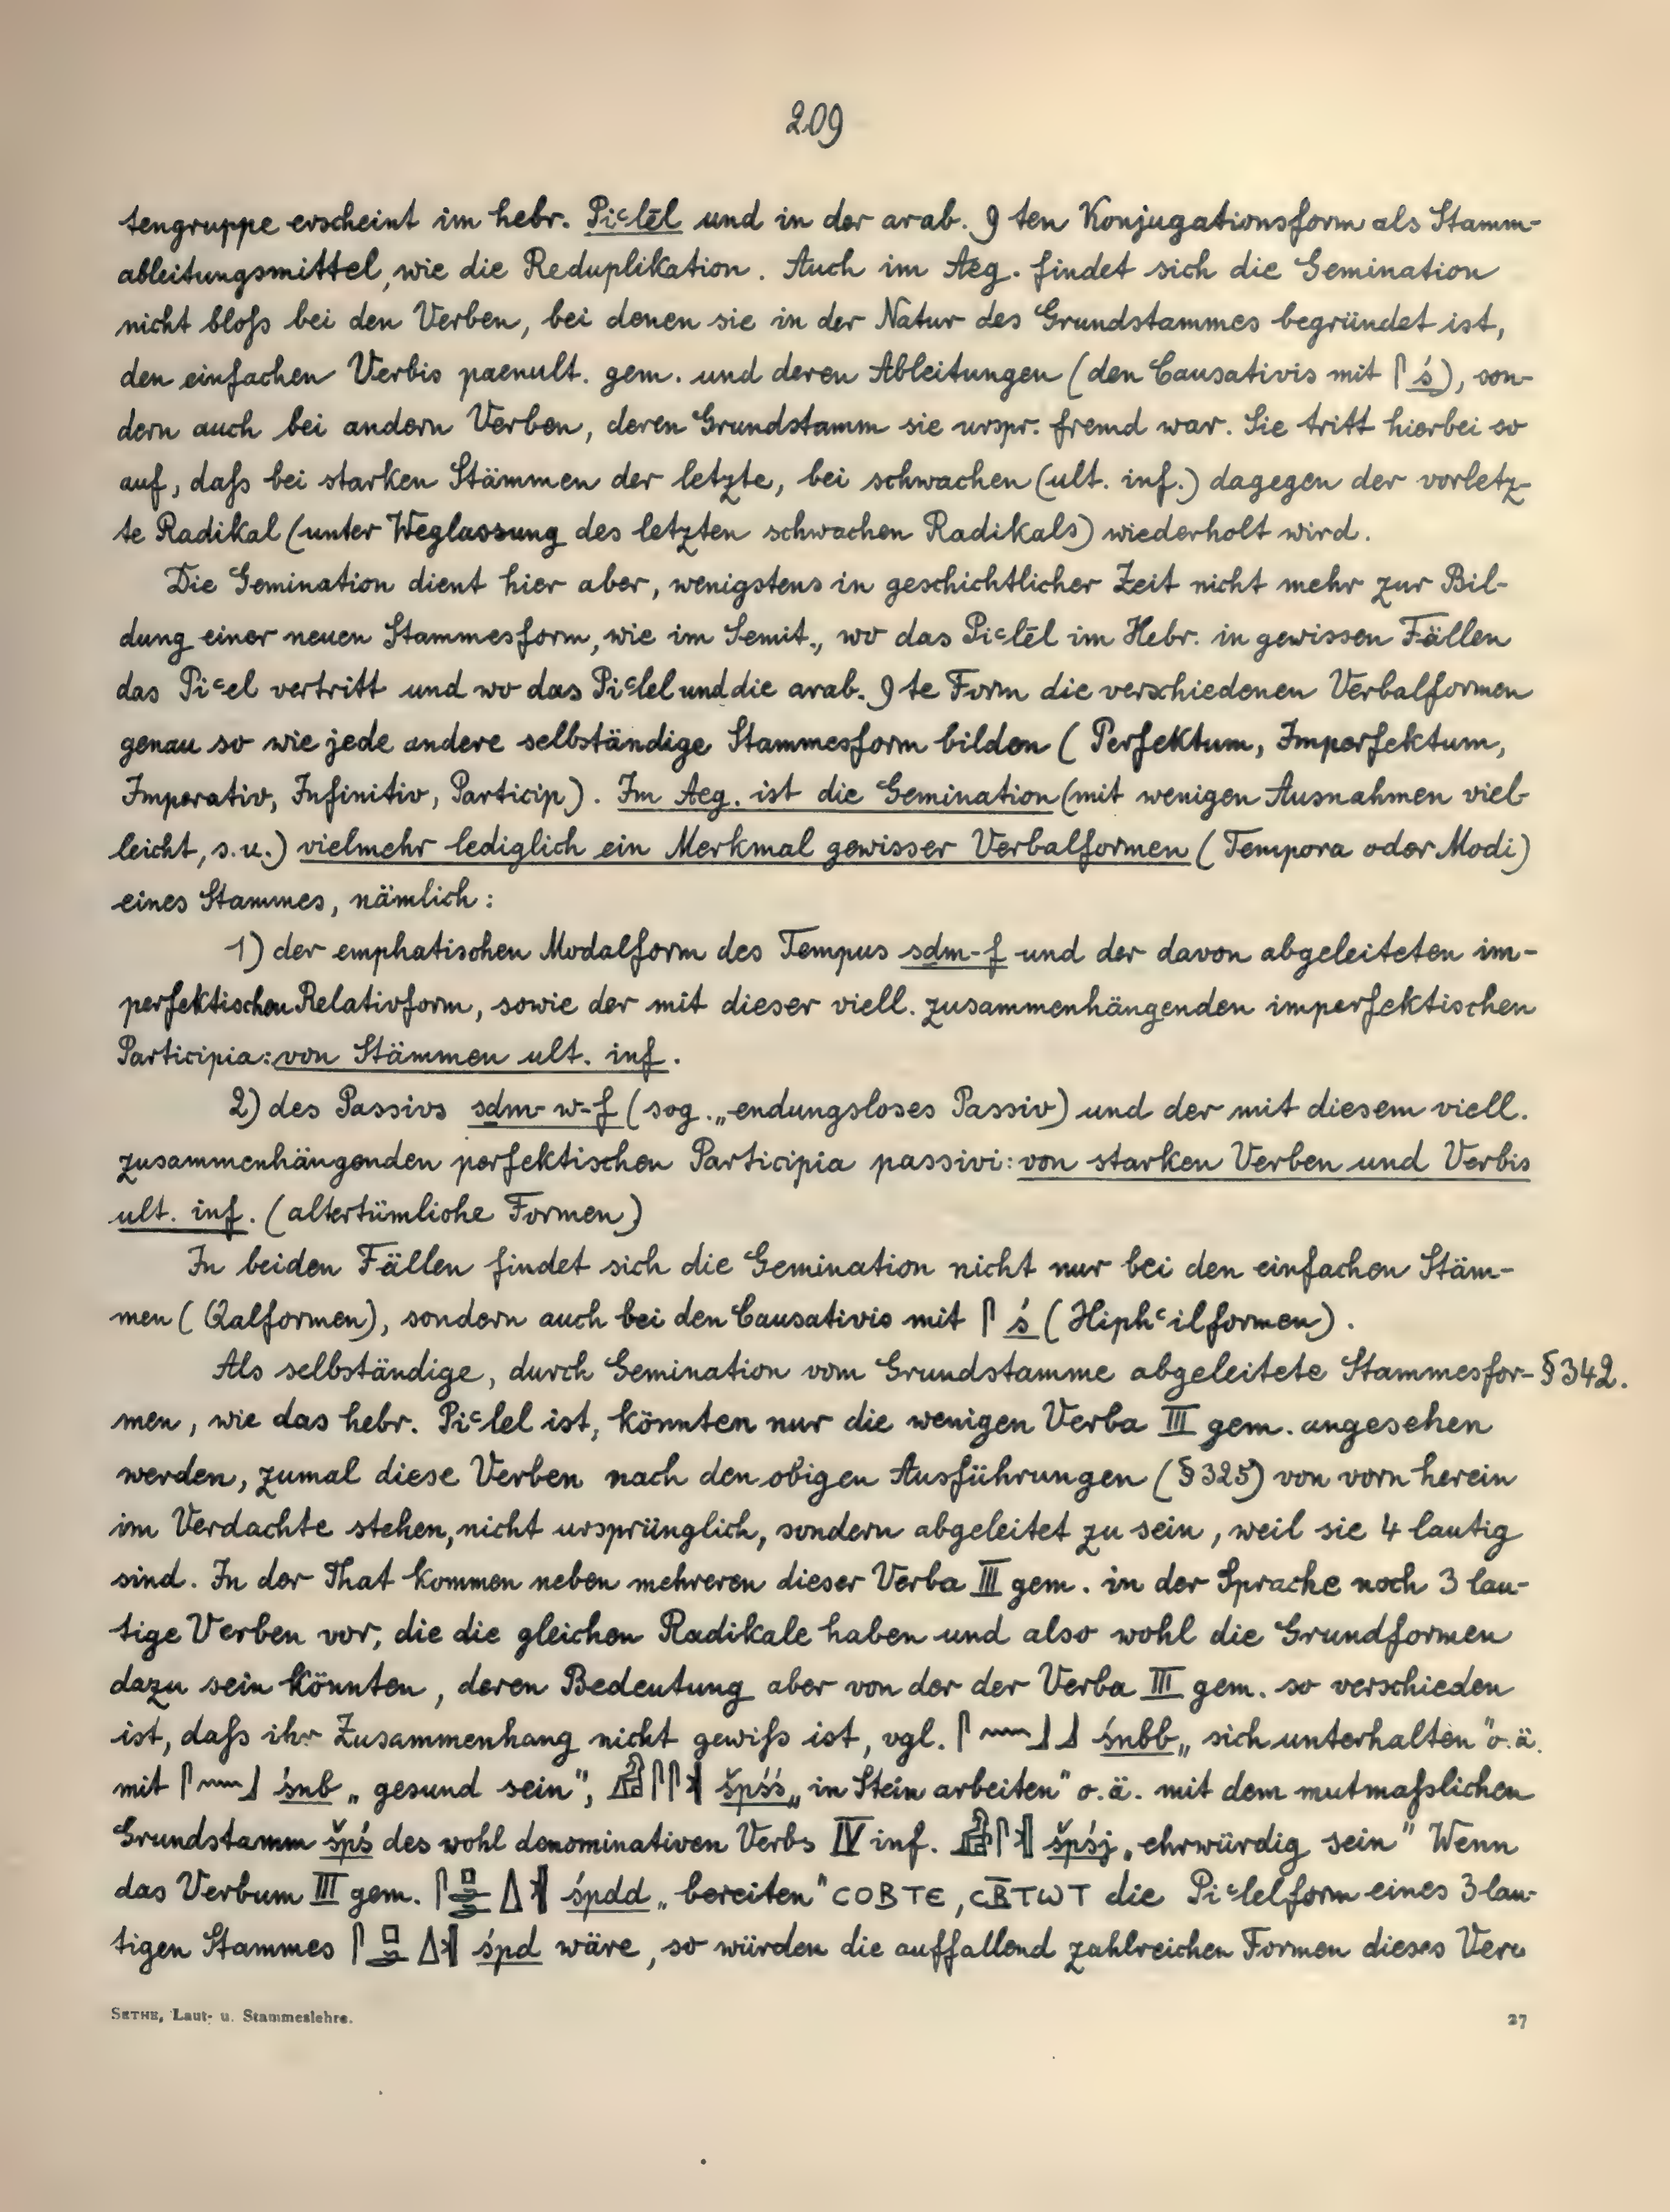 209
tengruppe erscheint im hebr. Piꜥlēl und in der arab. 9 ten Konjugationsform als Stamm-
ableitungsmittel, wie die Reduplikation. Auch im Aeg. findet sich die Gemination
nicht bloſs bei den Verben, bei denen sie in der Natur des Grundstammes begründet ist,
den einfachen Verbis paenult. gem. und deren Ableitungen (den Causativis mit 𓋴 ś), son-
dern auch bei andern Verben, deren Grundstamm sie urspr. fremd war. Sie tritt hierbei so
auf, daſs bei starken Stämmen der letzte, bei schwachen (ult. inf.) dagegen der vorletz-
te Radikal (unter Weglassung des letzten schwachen Radikals) wiederholt wird.
Die Gemination dient hier aber, wenigstens in geschichtlicher Zeit nicht mehr zur Bil-
dung einer neuen Stammesform, wie im Semit., wo das Piꜥlēl im Hebr. in gewissen Fällen
das Piꜥel vertritt und wo das Piꜥlel und die arab. 9 te Form die verschiedenen Verbalformen
genau so wie jede andere selbständige Stammesform bilden (Perfektum, Imperfektum,
Imperativ, Infinitiv, Particip). Im Aeg. ist die Gemination (mit wenigen Ausnahmen viel-
leicht, s. u.) vielmehr lediglich ein Merkmal gewisser Verbalformen (Tempora oder Modi)
eines Stammes, nämlich:
1) der emphatischen Modalform des Tempus sḏm-f und der davon abgeleiteten im-
perfektischen Relativform, sowie der mit dieser viell. zusammenhängenden imperfektischen
Participia: von Stämmen ult. inf.
2) des Passivs sḏm-w-f (sog. „endungsloses Passiv) und der mit diesem viell.
zusammenhängenden perfektischen Participia passivi: von starken Verben und Verbis
ult. inf. (altertümliche Formen)
In beiden Fällen findet sich die Gemination nicht nur bei den einfachen Stäm-
men (Qalformen), sondern auch bei den Causativis mit 𓋴 ś (Hiphꜥilformen).
Als selbständige, durch Gemination vom Grundstamme abgeleitete Stammesfor- §342.
men, wie das hebr. Piꜥlel ist, könnten nur die wenigen Verba III gem. angesehen
werden, zumal diese Verben nach den obigen Ausführungen (§325) von vorn herein
im Verdachte stehen, nicht ursprünglich, sondern abgeleitet zu sein, weil sie 4 lautig
sind. In der That kommen neben mehreren dieser Verba III gem. in der Sprache noch 3 lau-
tige Verben vor, die die gleichen Radikale haben und also wohl die Grundformen
dazu sein könnten, deren Bedeutung aber von der der Verba III gem. so verschieden
ist, daſs ihr Zusammenhang nicht gewiſs ist, vgl. 𓋴𓈖𓃀𓃀 śnbb „sich unterhalten" o. ä.
mit 𓋴𓈖𓃀 śnb „gesund sein", 𓀻𓋴𓋴𓏛 špśś „in Stein arbeiten" o. ä. mit dem mutmaſslichen
Grundstamm špś des wohl denominativen Verbs IV inf. 𓀻𓋴𓏛 špśj „ehrwürdig sein" Wenn
das Verbum III gem. 𓋴𓊪𓂧𓂧𓇮𓏛 śpdd „bereiten" ⲤⲞⲂⲦⲈ, ⲤⲂ̅ⲦⲰⲦ die Piꜥlelform eines 3 lau-
tigen Stammes 𓋴𓊪𓂧𓇮𓏛 śpd wäre, so würden die auffallend zahlreichen Formen dieses Ver-
SETHE, Laut- u. Stammeslehre.
27